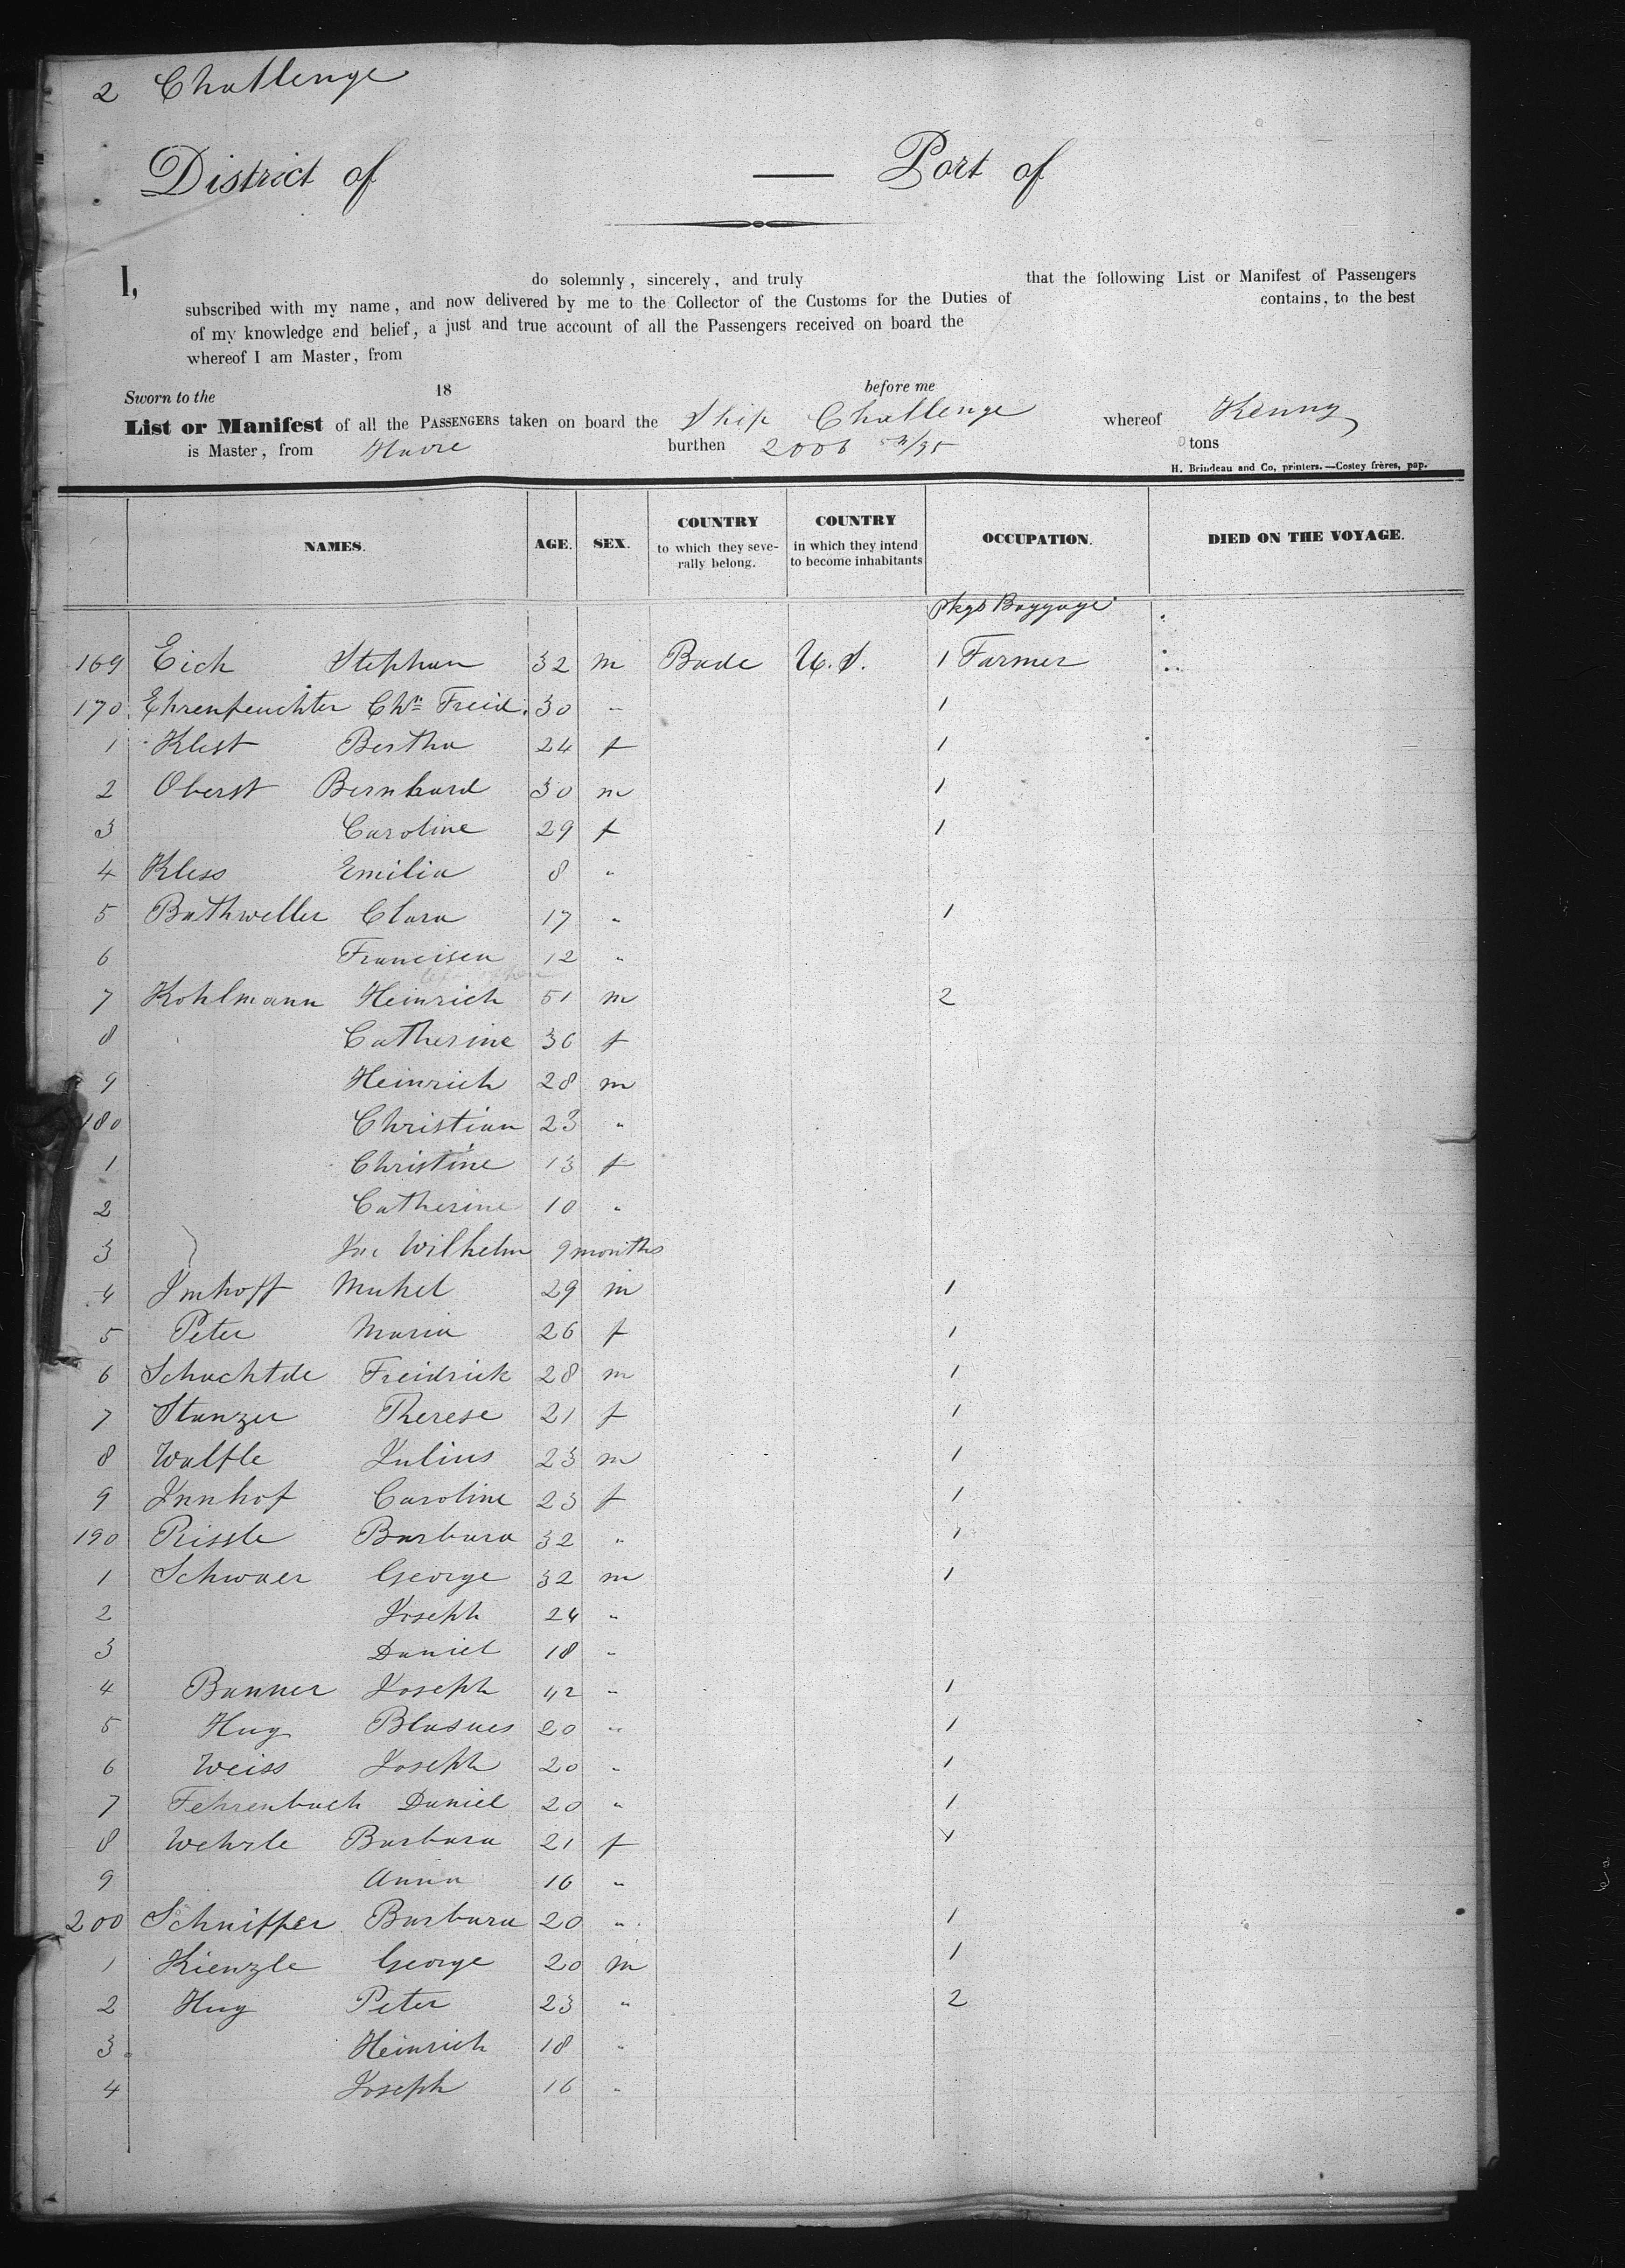 2 Challenge
District of — Port of
I, do solemnly, sincerely, and truly that the following List or Manifest of Passengers
subscribed with my name, and now delivered by me to the Collector of the Customs for the Duties of contains, to the best
of my knowledge and belief, a just and true account of all the Passengers received on board the
whereof I am Master, from
Sworn to the 18 before me
List or Manifest of all the PASSENGERS taken on board the Ship Challenge whereof Kenny
is Master, from Havre burthen 2006 /95 tons
H. Brindeau and Co, printers.—Costey frères, pap.
NAMES. AGE. SEX. COUNTRY to which they severally belong. COUNTRY in which they intend to become inhabitants OCCUPATION. DIED ON THE VOYAGE.
pkgs Baggage
169 Eich Stephan 32 m Bade U.S. 1 Farmer
170 Ehrenfeuchter Chn Freid. 30 " 1
1 Klest Bertha 24 f 1
2 Oberst Bernhard 30 m 1
3 Caroline 29 f 1
4 Kless Emilia 8 "
5 Bathweller Clara 17 " 1
6 Francisca 12 "
7 Kohlmann Heinrich 51 m 2
8 Catherine 36 f
9 Heinrich 28 m
180 Christian 23 "
1 Christine 13 f
2 Catherine 10 "
3 Wilhelm 9 months
4 Imhoff Michel 29 m 1
5 Peter Maria 26 f 1
6 Schachtde Freidrick 28 m 1
7 Stanzer Therese 21 f 1
8 Walfle Julius 23 m 1
9 Innhof Caroline 23 f 1
190 Rissle Barbara 32 " 1
1 Schwaer George 32 m 1
2 Joseph 24 "
3 Daniel 18 "
4 Banner Joseph 42 " 1
5 Hug Blasues 20 " 1
6 Weiss Joseph 20 " 1
7 Fehrenbach Daniel 20 " 1
8 Wehrle Barbara 21 f 1
9 Anna 16 "
200 Schniffer Barbara 20 " 1
1 Kienzle George 20 m 1
2 Hug Peter 23 " 2
3 Heinrich 18 "
4 Joseph 16 "